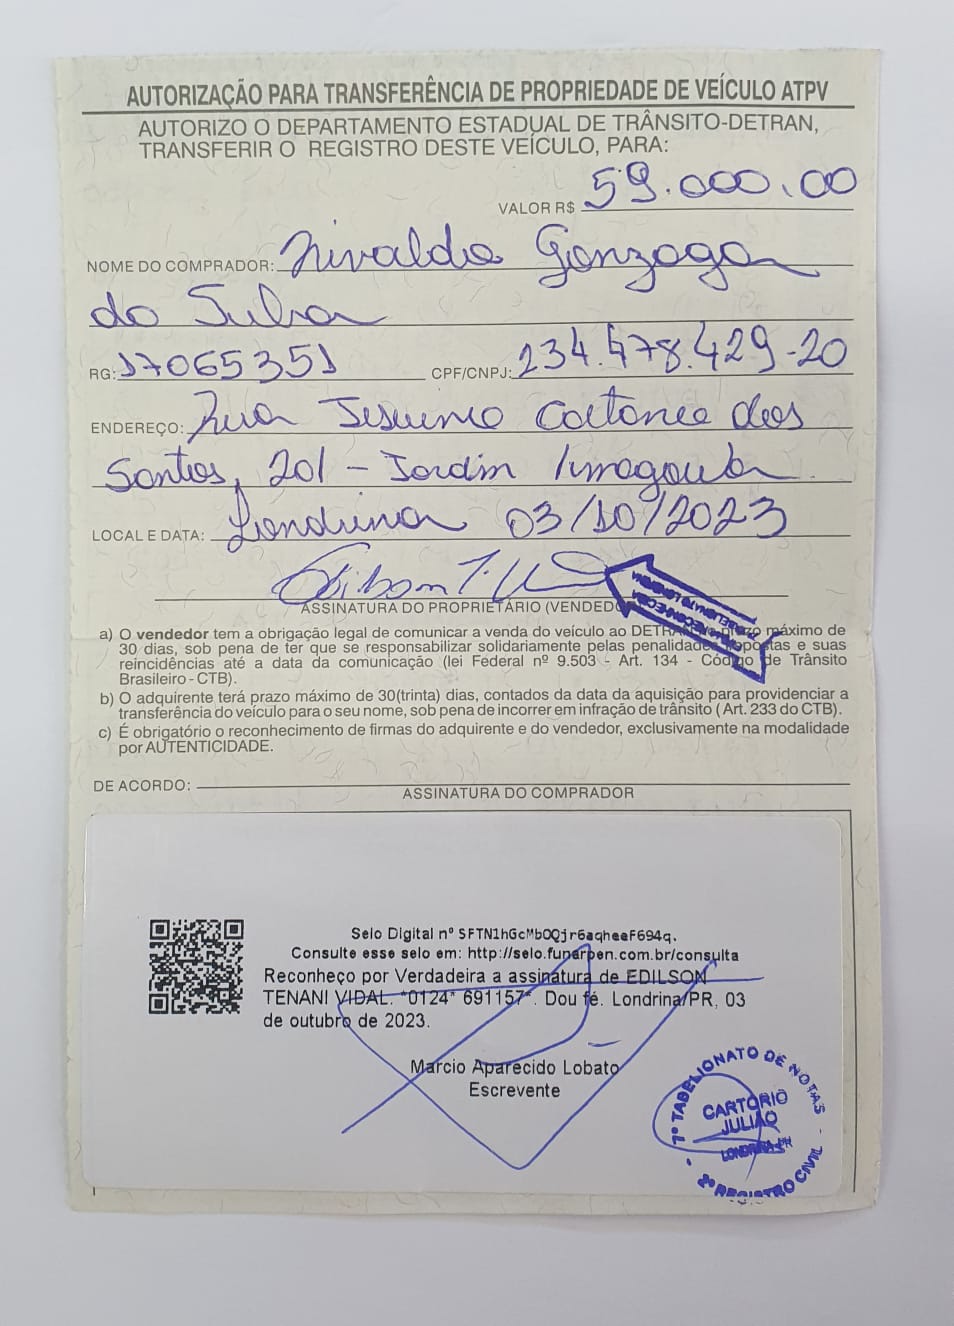 AUTORIZAÇÃO PARA TRANSFERÊNCIA DE PROPRIEDADE DE VEÍCULO ATPV
AUTORIZO O DEPARTAMENTO ESTADUAL DE TRÂNSITO-DETRAN,
TRANSFERIR O REGISTRO DESTE VEÍCULO, PARA:
VALOR R$ 59.000,00
NOME DO COMPRADOR: Nivaldo Gonzaga
da Silva
RG: 17065351 CPF/CNPJ: 234.478.429-20
ENDEREÇO: Rua Jesuino Caetano dos
Santos, 201 - Jardim
LOCAL E DATA: Londrina 03/10/2023
ASSINATURA DO PROPRIETÁRIO (VENDEDO
a) O vendedor tem a obrigação legal de comunicar a venda do veículo ao DETRAN prazo máximo de
30 dias, sob pena de ter que se responsabilizar solidariamente pelas penalidades impostas e suas
reincidências até a data da comunicação (lei Federal nº 9.503 - Art. 134 - Código de Trânsito
Brasileiro - CTB).
b) O adquirente terá prazo máximo de 30(trinta) dias, contados da data da aquisição para providenciar a
transferência do veículo para o seu nome, sob pena de incorrer em infração de trânsito ( Art. 233 do CTB).
c) É obrigatório o reconhecimento de firmas do adquirente e do vendedor, exclusivamente na modalidade
por AUTENTICIDADE.
DE ACORDO:
ASSINATURA DO COMPRADOR
Selo Digital nº SFTN1hGcMbOQjr6aqheaF694q.
Consulte esse selo em: http://selo.funarpen.com.br/consulta
Reconheço por Verdadeira a assinatura de EDILSON
TENANI VIDAL. *0124* 691157*. Dou fé. Londrina/PR, 03
de outubro de 2023.
Marcio Aparecido Lobato
Escrevente
7º TABELIONATO DE NOTAS
CARTÓRIO
JULIÃO
LONDRINA-PR
2º REGISTRO CIVIL